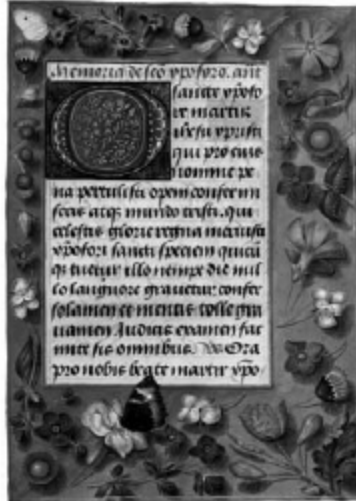 Memoria de sco xpoforo. ant
sancte xpofo
re martir
ihesu xpristi
qui pro eius
nomine pe
na pertulisti opem confer mi
seris atq mundo tristi. qui
celestis glorie regna meruisti
xpofori sancti speciem quicu
q tuetur illo nempe die nul
lo languore gravetur confer
solamen et mentis tolle gra
uamen Iudicis examen fac
mite sit omnibus Ora
pro nobis beate martir xpo